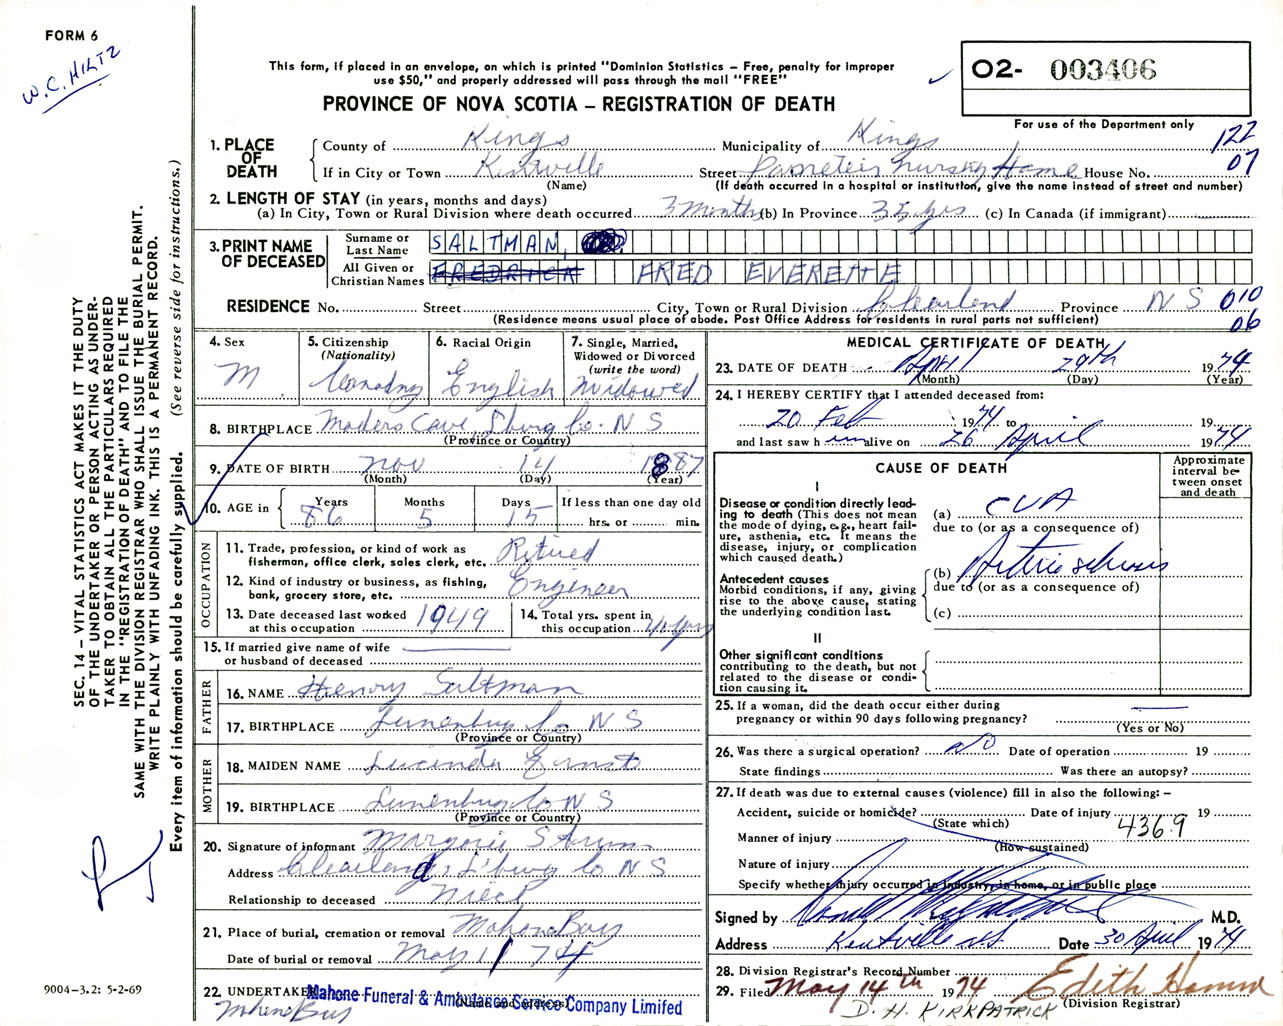 FORM 6
W.C. HILTZ
This form, if placed in an envelope, on which is printed "Dominion Statistics – Free, penalty for improper
use $50," and properly addressed will pass through the mail "FREE"
PROVINCE OF NOVA SCOTIA – REGISTRATION OF DEATH
O2- 003406
For use of the Department only
122
07
1. PLACE OF DEATH
County of Kings Municipality of Kings
If in City or Town Kentville Street Nursing Home House No.
(Name) (If death occurred in a hospital or institution, give the name instead of street and number)
2. LENGTH OF STAY (in years, months and days)
(a) In City, Town or Rural Division where death occurred 3 months (b) In Province 35 yrs (c) In Canada (if immigrant)
3. PRINT NAME OF DECEASED
Surname or Last Name SALTMAN,
All Given or Christian Names FREDRICK FRED EVERETTE
RESIDENCE No. Street City, Town or Rural Division Clearland Province N S 010
(Residence means usual place of abode. Post Office Address for residents in rural parts not sufficient) 06
4. Sex M
5. Citizenship (Nationality)
6. Racial Origin English
7. Single, Married, Widowed or Divorced (write the word) Widowed
8. BIRTHPLACE Maders Cove L'burg Co. N S
(Province or Country)
9. DATE OF BIRTH Nov 14 1887
(Month) (Day) (Year)
10. AGE in Years 86 Months 5 Days 15 If less than one day old hrs. or min.
OCCUPATION
11. Trade, profession, or kind of work as fisherman, office clerk, sales clerk, etc. Retired
12. Kind of industry or business, as fishing, bank, grocery store, etc. Engineer
13. Date deceased last worked at this occupation 1949
14. Total yrs. spent in this occupation
15. If married give name of wife or husband of deceased
FATHER
16. NAME Henry Saltman
17. BIRTHPLACE Lunenburg Co N S
(Province or Country)
MOTHER
18. MAIDEN NAME Lucinda Ernst
19. BIRTHPLACE Lunenburg Co N S
(Province or Country)
20. Signature of informant Marjorie S
Address Clearland, L'burg Co N S
Relationship to deceased Niece
21. Place of burial, cremation or removal Mahone Bay
Date of burial or removal May 1 / 74
22. UNDERTAKER Mahone Funeral & Ambulance Service Company Limited
(Name and address)
Mahone Bay
MEDICAL CERTIFICATE OF DEATH
23. DATE OF DEATH April 29th 1974
(Month) (Day) (Year)
24. I HEREBY CERTIFY that I attended deceased from:
20 Feb 1974 to 19
and last saw him alive on 26 April 1974
CAUSE OF DEATH
Approximate interval between onset and death
I
Disease or condition directly lead-
ing to death (This does not mean
the mode of dying, e.g., heart fail-
ure, asthenia, etc. It means the
disease, injury, or complication
which caused death.)
(a) CVA
due to (or as a consequence of)
Antecedent causes
Morbid conditions, if any, giving
rise to the above cause, stating
the underlying condition last.
(b)
due to (or as a consequence of)
(c)
II
Other significant conditions
contributing to the death, but not
related to the disease or condi-
tion causing it.
25. If a woman, did the death occur either during
pregnancy or within 90 days following pregnancy?
(Yes or No)
26. Was there a surgical operation? NO Date of operation 19
State findings Was there an autopsy?
27. If death was due to external causes (violence) fill in also the following: –
Accident, suicide or homicide? Date of injury 19
(State which) 436.9
Manner of injury
(How sustained)
Nature of injury
Specify whether injury occurred in industry, in home, or in public place
Signed by M.D.
Address Kentville N.S. Date 30 April 1974
28. Division Registrar's Record Number
29. Filed May 14th 1974 Edith
(Division Registrar)
D. H. KIRKPATRICK
SEC. 14 – VITAL STATISTICS ACT MAKES IT THE DUTY
OF THE UNDERTAKER OR PERSON ACTING AS UNDER-
TAKER TO OBTAIN ALL THE PARTICULARS REQUIRED
IN THE "REGISTRATION OF DEATH" AND TO FILE THE
SAME WITH THE DIVISION REGISTRAR WHO SHALL ISSUE THE BURIAL PERMIT.
WRITE PLAINLY WITH UNFADING INK. THIS IS A PERMANENT RECORD.
Every item of information should be carefully supplied. (See reverse side for instructions.)
9004-3.2: 5-2-69